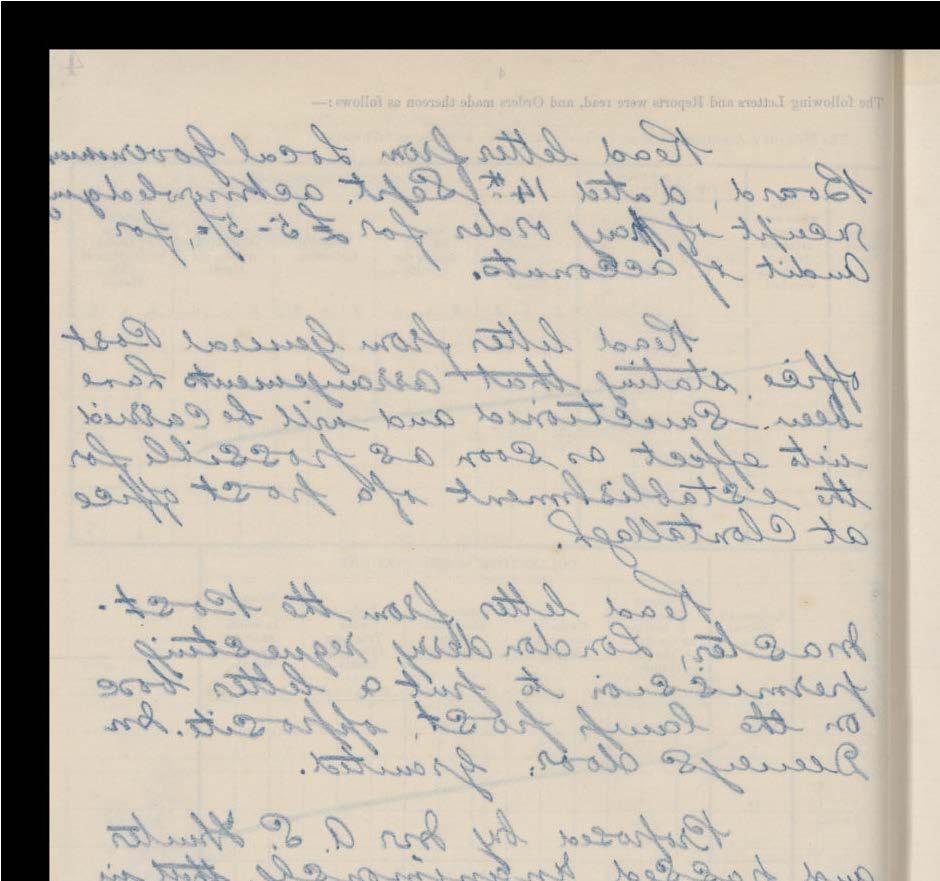 4
4
The following Letters and Reports were read, and Orders made thereon as follows:—
Read letter from Local Governmen
Board, dated 14th Sept. acknowledging
receipt of pay order for £5-5/=, for
Audit of accounts.
Read letter from General Post
Office, stating that arrangements have
been sanctioned and will be carried
into effect as soon as possible for
the establishment of a post office
at Clontallagh.
Read letter from the Post-
master, Londonderry, requesting
permission to put a letter box
on the lamp post, opposite Mr.
Deeney's door. Granted.
Proposed by Mr A. S. Hunter
and passed that in